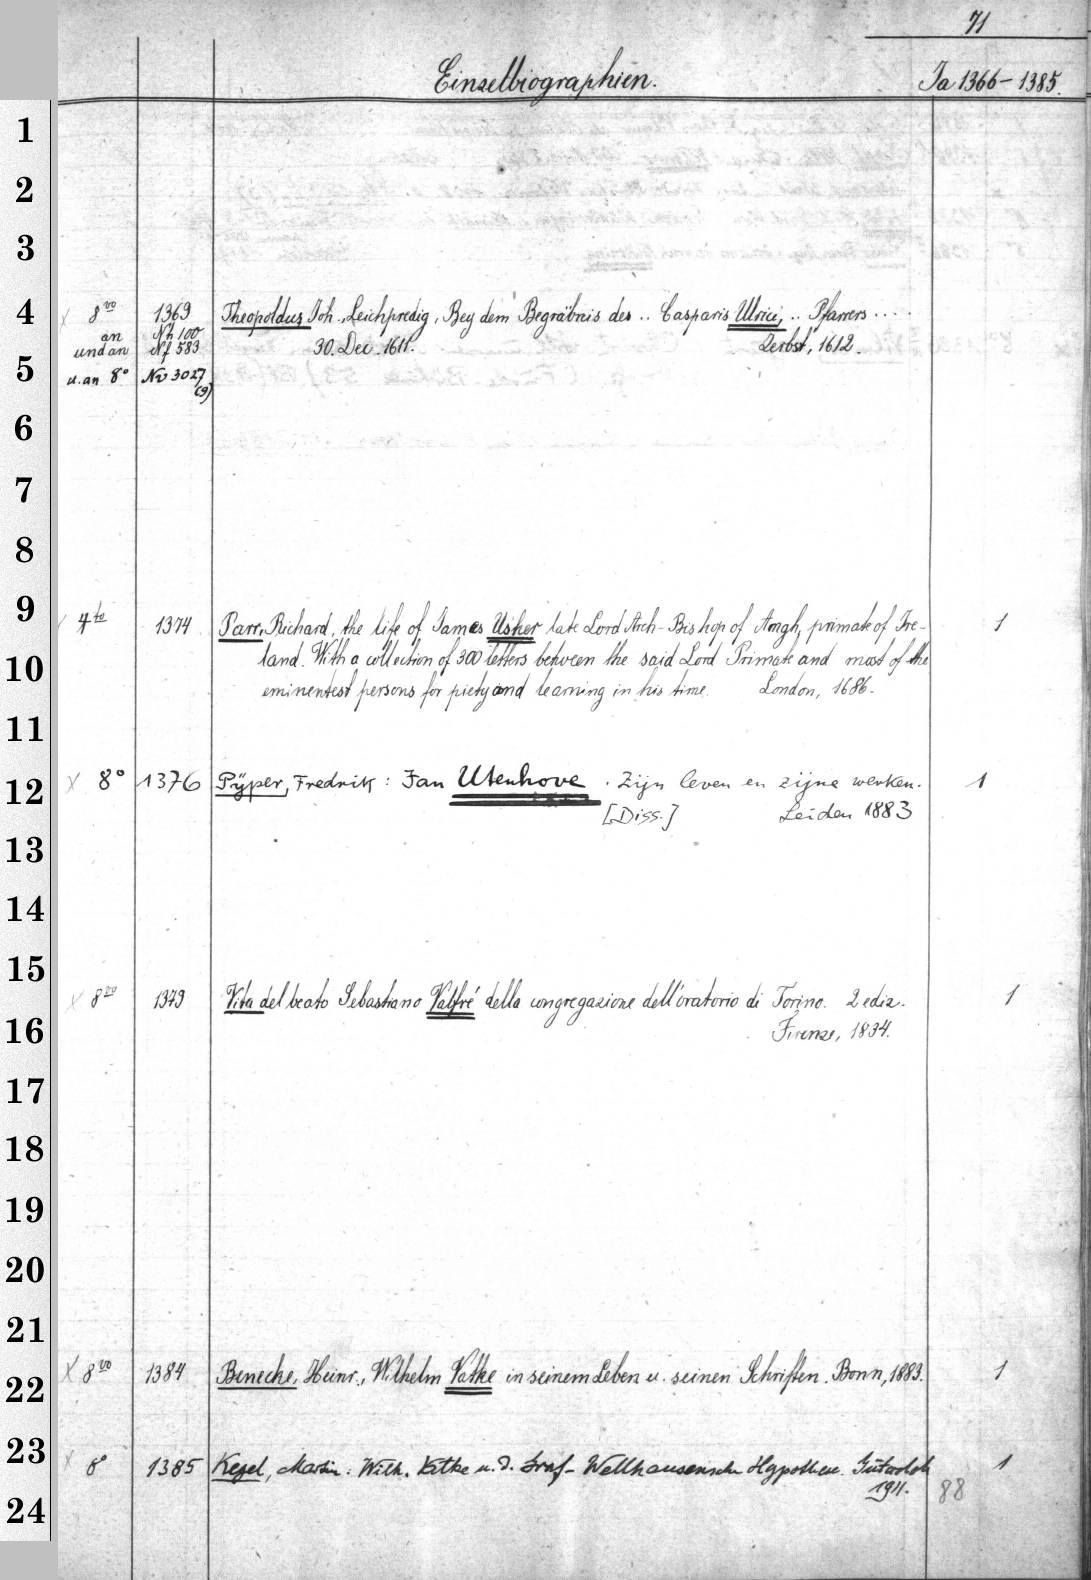 71
Einzelbiographien.
Ja 1366 – 1385.
1
2
3
4
5
6
7
8
9
10
11
12
13
14
15
16
17
18
19
20
21
22
23
24
x 8vo 1369 Theopoldus Joh., Leichpredig, Bey dem Begräbnis des .. Casparis Ulrici, .. Pfarrers ....
an Nh 100 30. Dec. 1611. Zerbst, 1612.
und an Nf 583
u. an 8° Nv 3027
(9)
x 4to 1374 Parr, Richard, the life of James Usher late Lord Arch-Bishop of Amgh, primate of Ire- 1
land. With a collection of 300 letters between the said Lord Primate and most of the
eminentest persons for piety and learning in his time. London, 1686.
x 8° 1376 Pÿper, Fredrik: Jan Utenhove. Zijn leven en zijne werken. 1
[Diss.] Leiden 1883
x 8vo 1379 Vita del beato Sebastiano Valfré della congregazione dell'oratorio di Torino. 2 ediz. 1
Firenze, 1834.
x 8vo 1384 Benecke, Heinr., Wilhelm Vatke in seinem Leben u. seinen Schriften. Bonn, 1883. 1
x 8° 1385 Kegel, Martin: Wilh. Vatke u. d. Graf-Wellhausensche Hypothese. Gütersloh 1
1911. 88